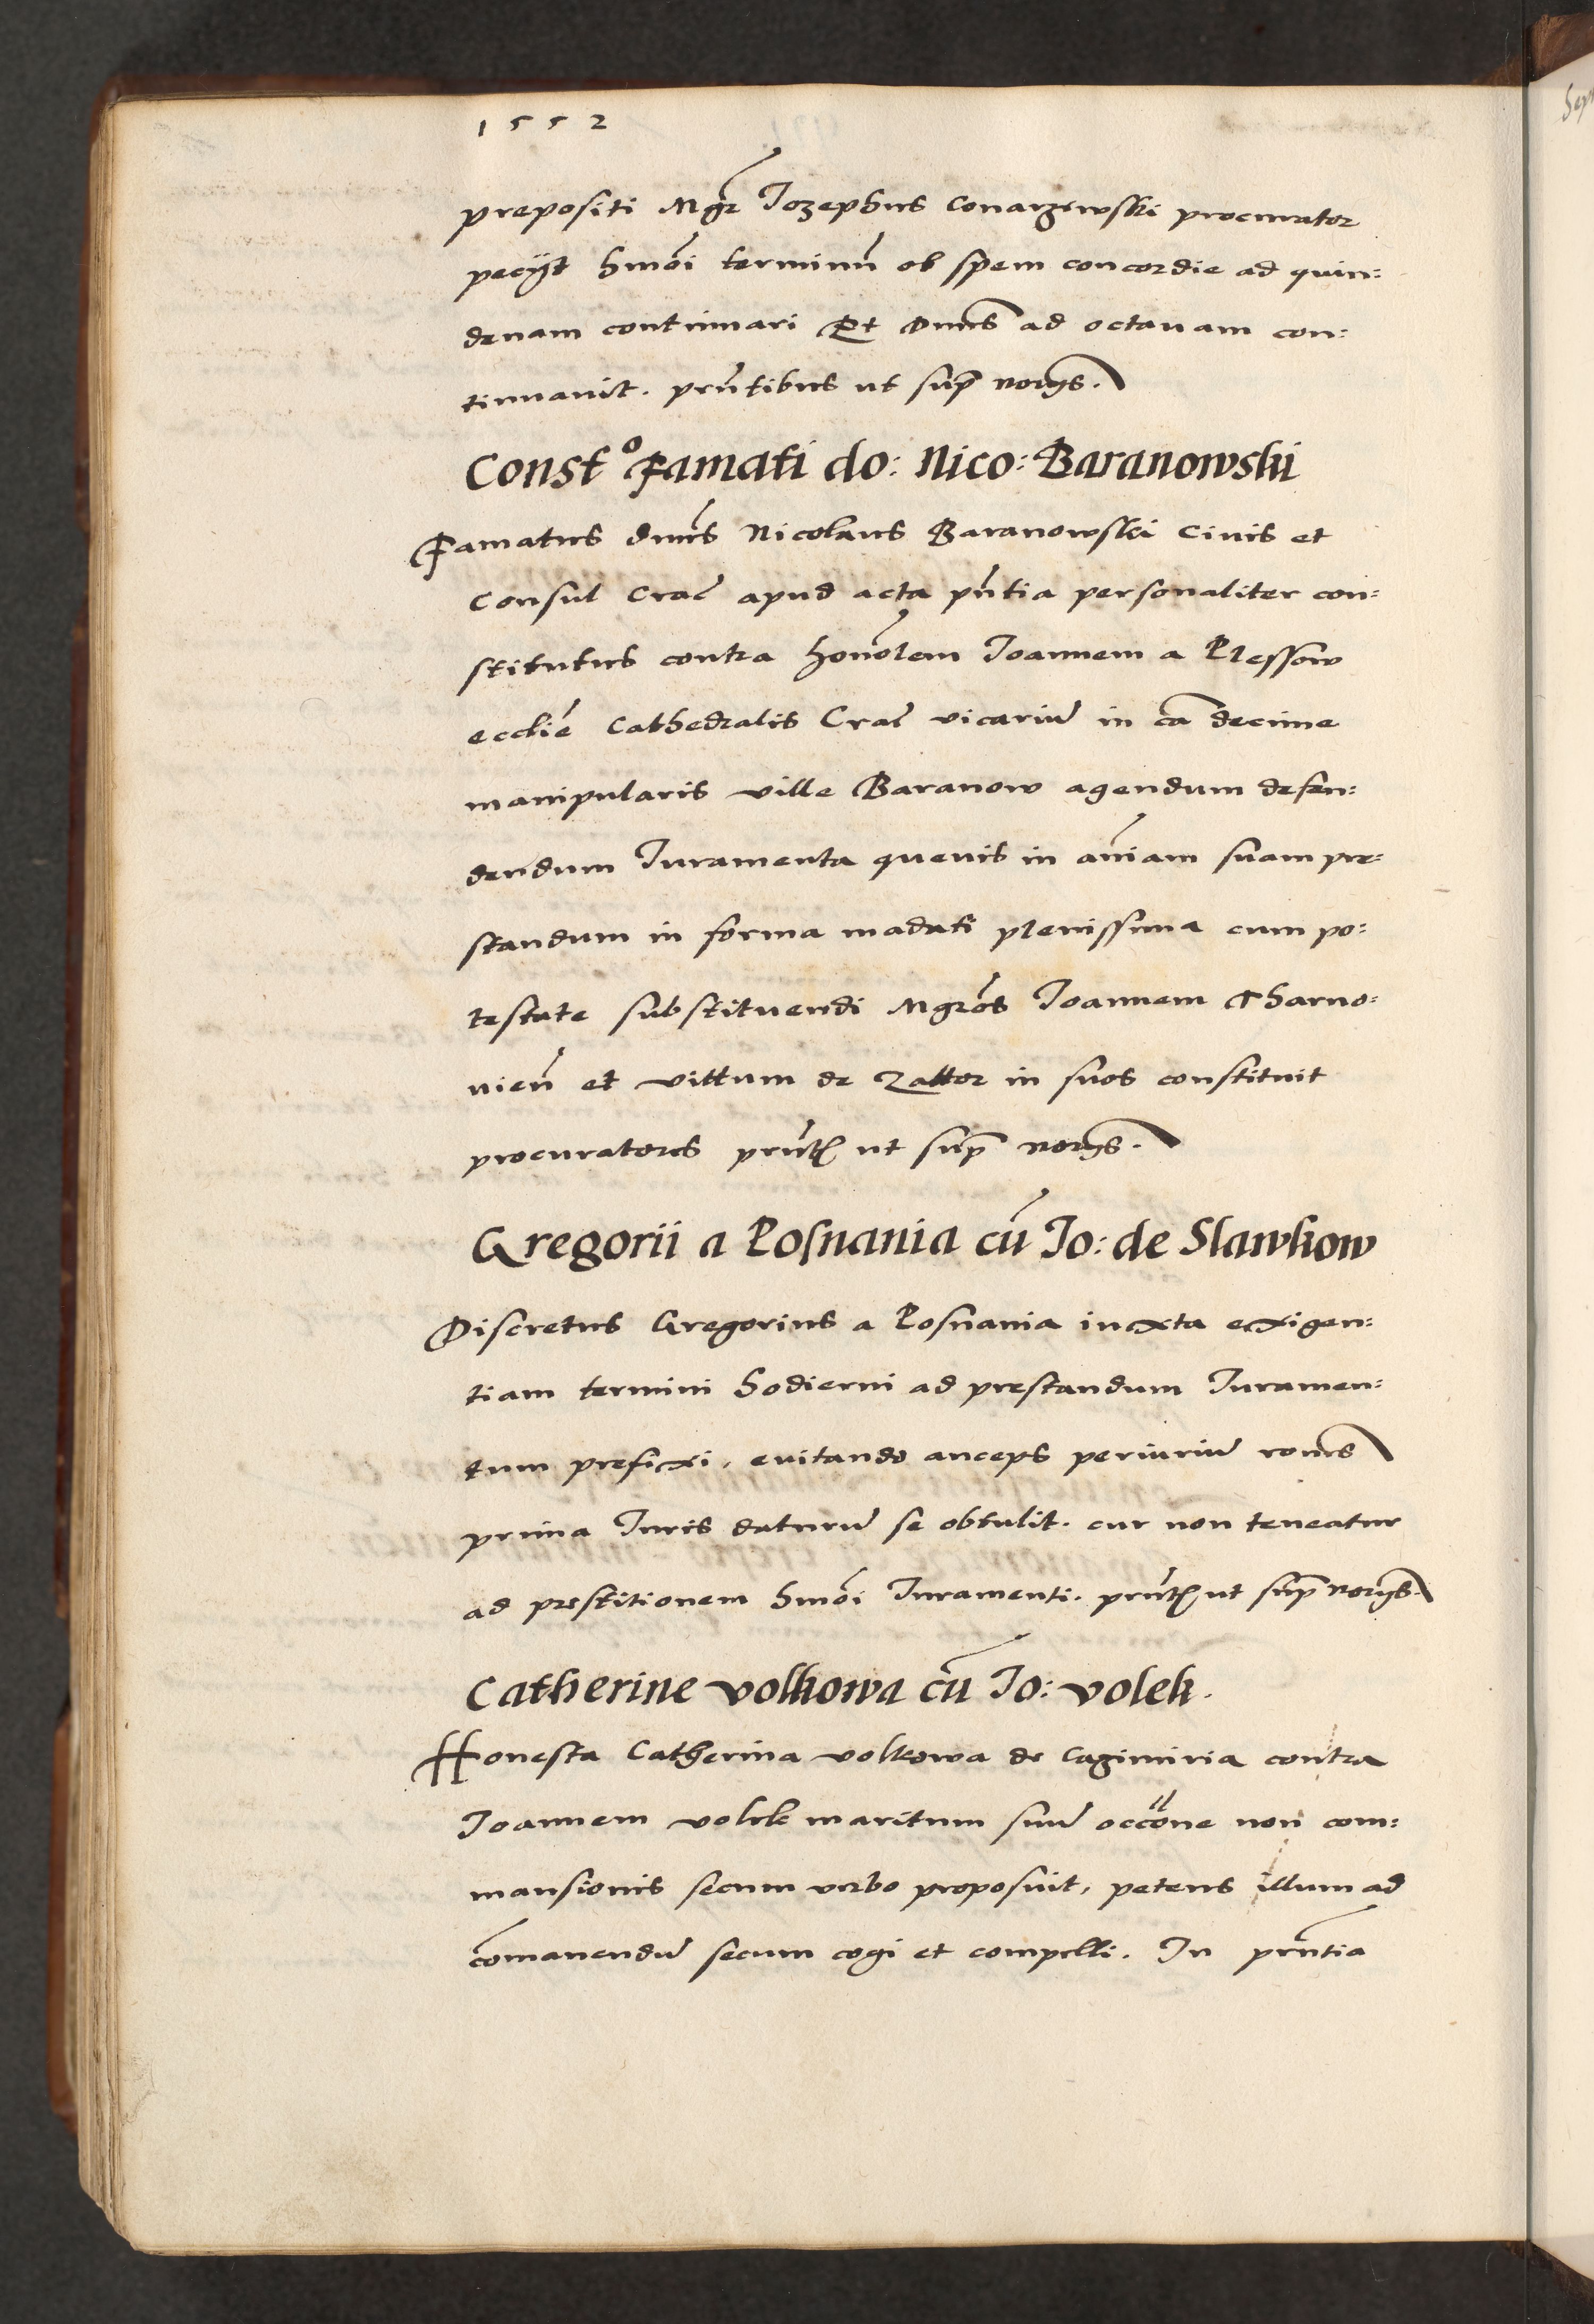 1552
prepositi Mgr̃ Jozephus Conarzewski procurator
pecijt hmõi terminũ ob spem concordie ad quin:
denam continuari Et Dnus̃ ad octauam con:
tinuauit. prñtibus ut sup̃ norijs.
Constᵒ Famati do: Nico: Baranowski
Famatus dnus̃ Nicolaus Baranowski Ciuis et
Consul Crac̃ apud acta pñtia personaliter con:
stitutus contra honõlem Joannem a Plessow
ecclie᷃ Cathedralis Crac̃ vicariũ in cã decime
manipularis ville Baranow agendum defen:
dendum Iuramenta queuis in aĩam suam pre:
standum in forma madati plenissima cum po:
testate substituendi Mgrõs Joannem Tharno:
uieñ et vittum de Zattor in suos constituit
procuratores prñt̃ ut sup̃ norijs.
Gregorii a Posnania cũ Jo: de Slawkow
Discretus Gregorius a Posnania iuxta exigen:
tiam termini hodierni ad prestandum Iuramen:
tum prefixi, euitando anceps periuriũ rones̃
prima Iuris daturũ se obtulit. cur non teneatur
ad prestitionem hmõi Iuramenti. prñt̃ ut sup̃ norijs.
Catherine volkowa cũ Jo: volek.
Honesta Catherina volkowa de Cazimiria contra
Joannem volek maritum suũ occõne non com:
mansionis secum verbo proposuit, petens illum ad
cõmanendũ secum cogi et compelli. In prñtia